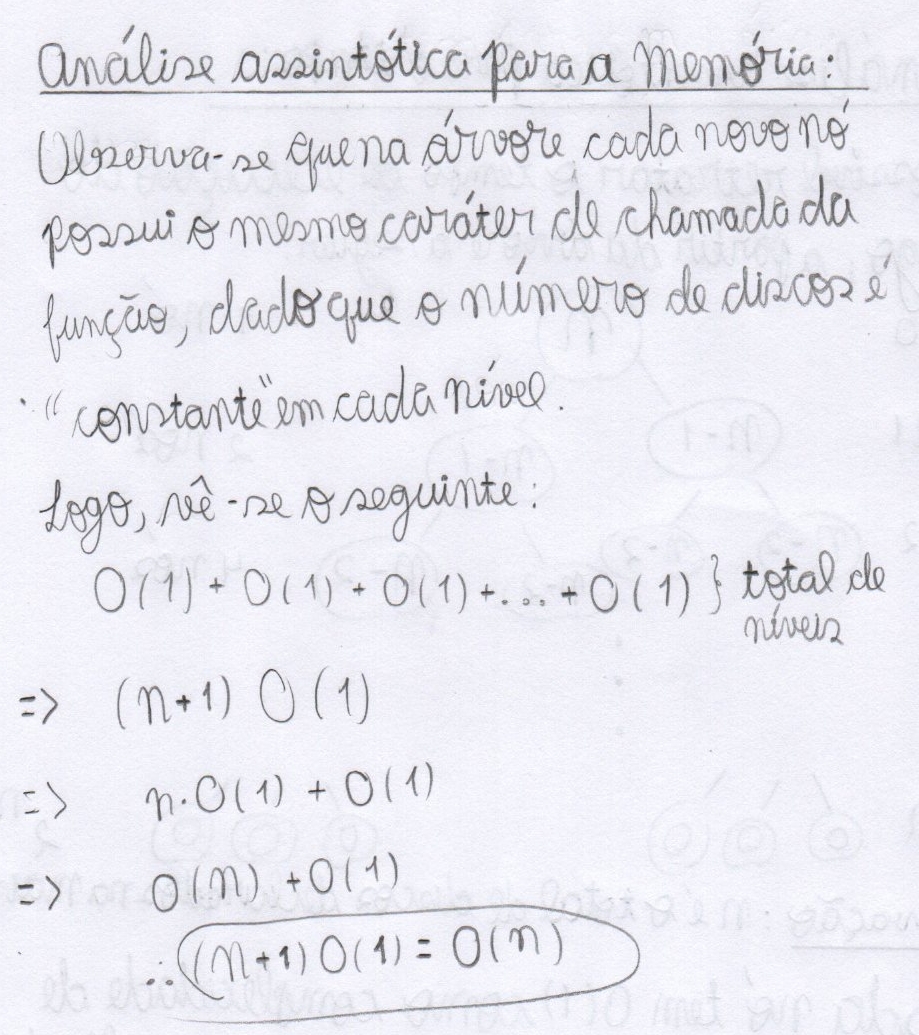 Análise assintótica para a Memória:
Observa-se que na árvore cada novo nó
possui o mesmo caráter de chamada da
função, dado que o número de discos é
"constante" em cada nível.
Logo, vê-se o seguinte:
O(1) + O(1) + O(1) +... + O(1) } total de
níveis
=> (n+1) O(1)
=> n.O(1) + O(1)
=> O(n) + O(1)
∴ (n+1) O(1) = O(n)